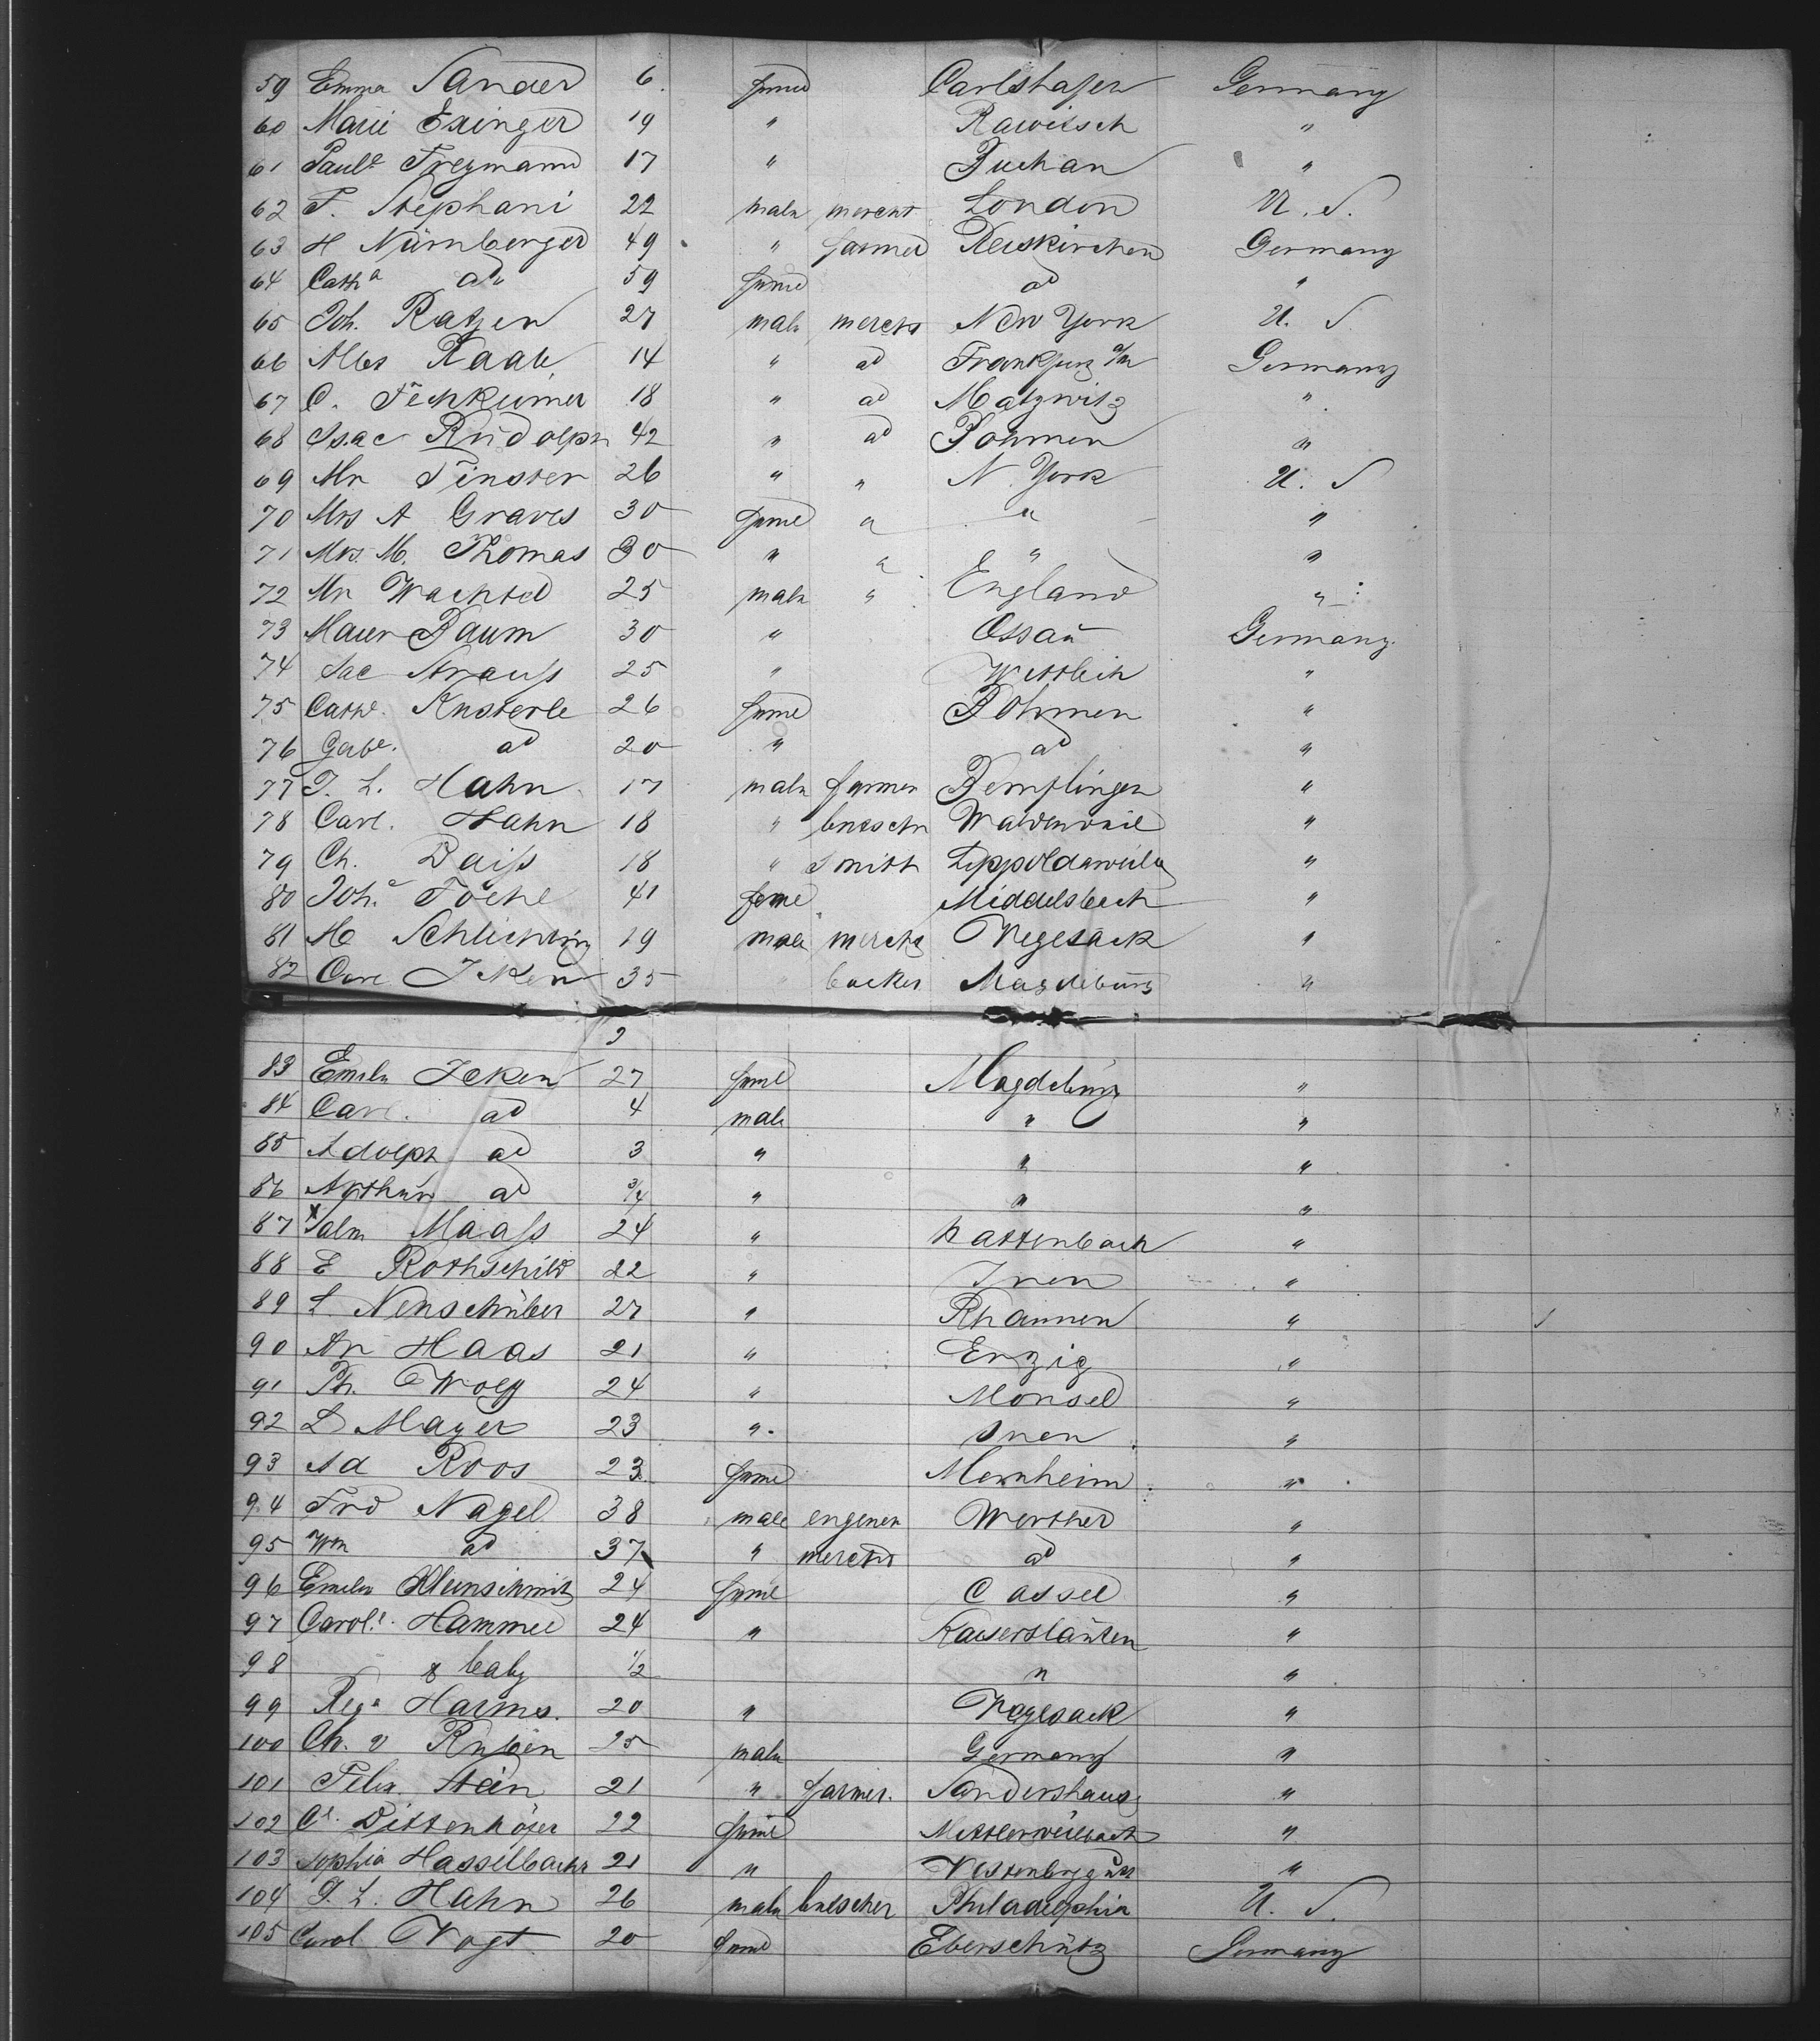 59 Emma Sander 6 feme Carlshafen Germany
60 Marie Exinger 19 " Rawitsch "
61 Paule Fregmann 17 " Buchau "
62 F. Stephani 22 male mercht London U. S.
63 H Nürnberger 49 " farmer Reiskirchen Germany
64 Catha do 59 feme do "
65 Joh. Ratjen 27 male mercht New York U. S
66 Alb. Raab 14 " do Frankfurt a/m Germany
67 C. 18 " do Matzwitz "
68 Isac Rudolph 42 " do Böhmen "
69 Mr Finster 26 " " N. York U. S
70 Mrs A Graves 30 feme " " "
71 Mrs. M. Thomas 30 " " " "
72 Mr Wachtel 25 male " England "
73 Maier Baum 30 " Germany
74 Isac Strauss 25 " Wittlich "
75 Cathe. Knsterle 26 feme Böhmen "
76 Gabe. do 20 " do "
77 J. L. Hahn 17 male farmer Bempflingen "
78 Carl. Hahn 18 " butscher "
79 Ch. Daiss 18 " smith Lippoldsweiler "
80 Joha Toehl 41 feme Middelsbach "
81 M Schlichting 19 male mercht Vegesack "
82 Carl Jken 35 " backer Magdeburg "
3
83 Emilie Jeken 27 feml Magdeburg "
84 Carl. do 4 male " "
85 Adolph do 3 " " "
86 Arthur do 3/4 " " "
87 x Salm Maass 24 " Kattenbach "
88 E Rothschild 22 " "
89 L. 27 " Rhaunen "
90 Ar Haas 21 " Erzig "
91 Ph. Wolff 24 " Monsel "
92 L Mayer 23 " "
93 Ad Roos 23 feme Monheim "
94 Frd Nagel 38 male engener Werther "
95 Wm do 37 " mercht do "
96 Emilie Kleinschmit 24 feme Cassel "
97 Carole. Hammel 24 " Kaiserslautern "
98 & baby 1/2 " "
99 Rega Harms. 20 " Vegesack "
100 Ch. v 25 male Germany "
101 Felix Stein 21 " farmer. Sandershaus "
102 Ce. Dittenhöfer 22 feme Mittlerweilbach "
103 Sophia Hasselbacher 21 " "
104 J. L. Hahn 26 male butscher Philadelphia U. S.
105 Carol Vogt 20 feme Eberschütz Germany